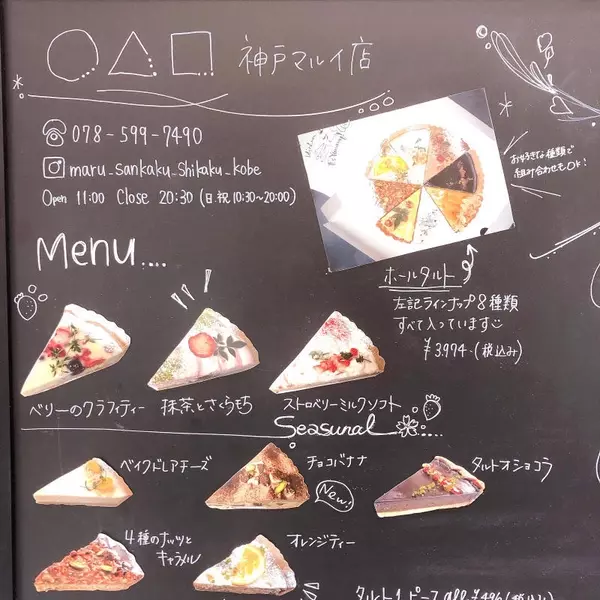 ○△□ 神戸マルイ店
078-599-7490
maru_sankaku_shikaku_kobe
Open 11:00 Close 20:30 (日祝10:30~20:00)
お好きな種類で
組み合わせもOK!
Menu....
ホールタルト
左記ラインナップ8種類
すべて入っています
¥3,974.(税込み)
ベリーのクラフィティー
抹茶とさくらもち
ストロベリーミルクソフト
Seasunal....
ベイクドレアチーズ
チョコバナナ
New!
タルトオショコラ
4種のナッツと
キャラメル
オレンジティー
タルト1ピース all ¥496(税込み)